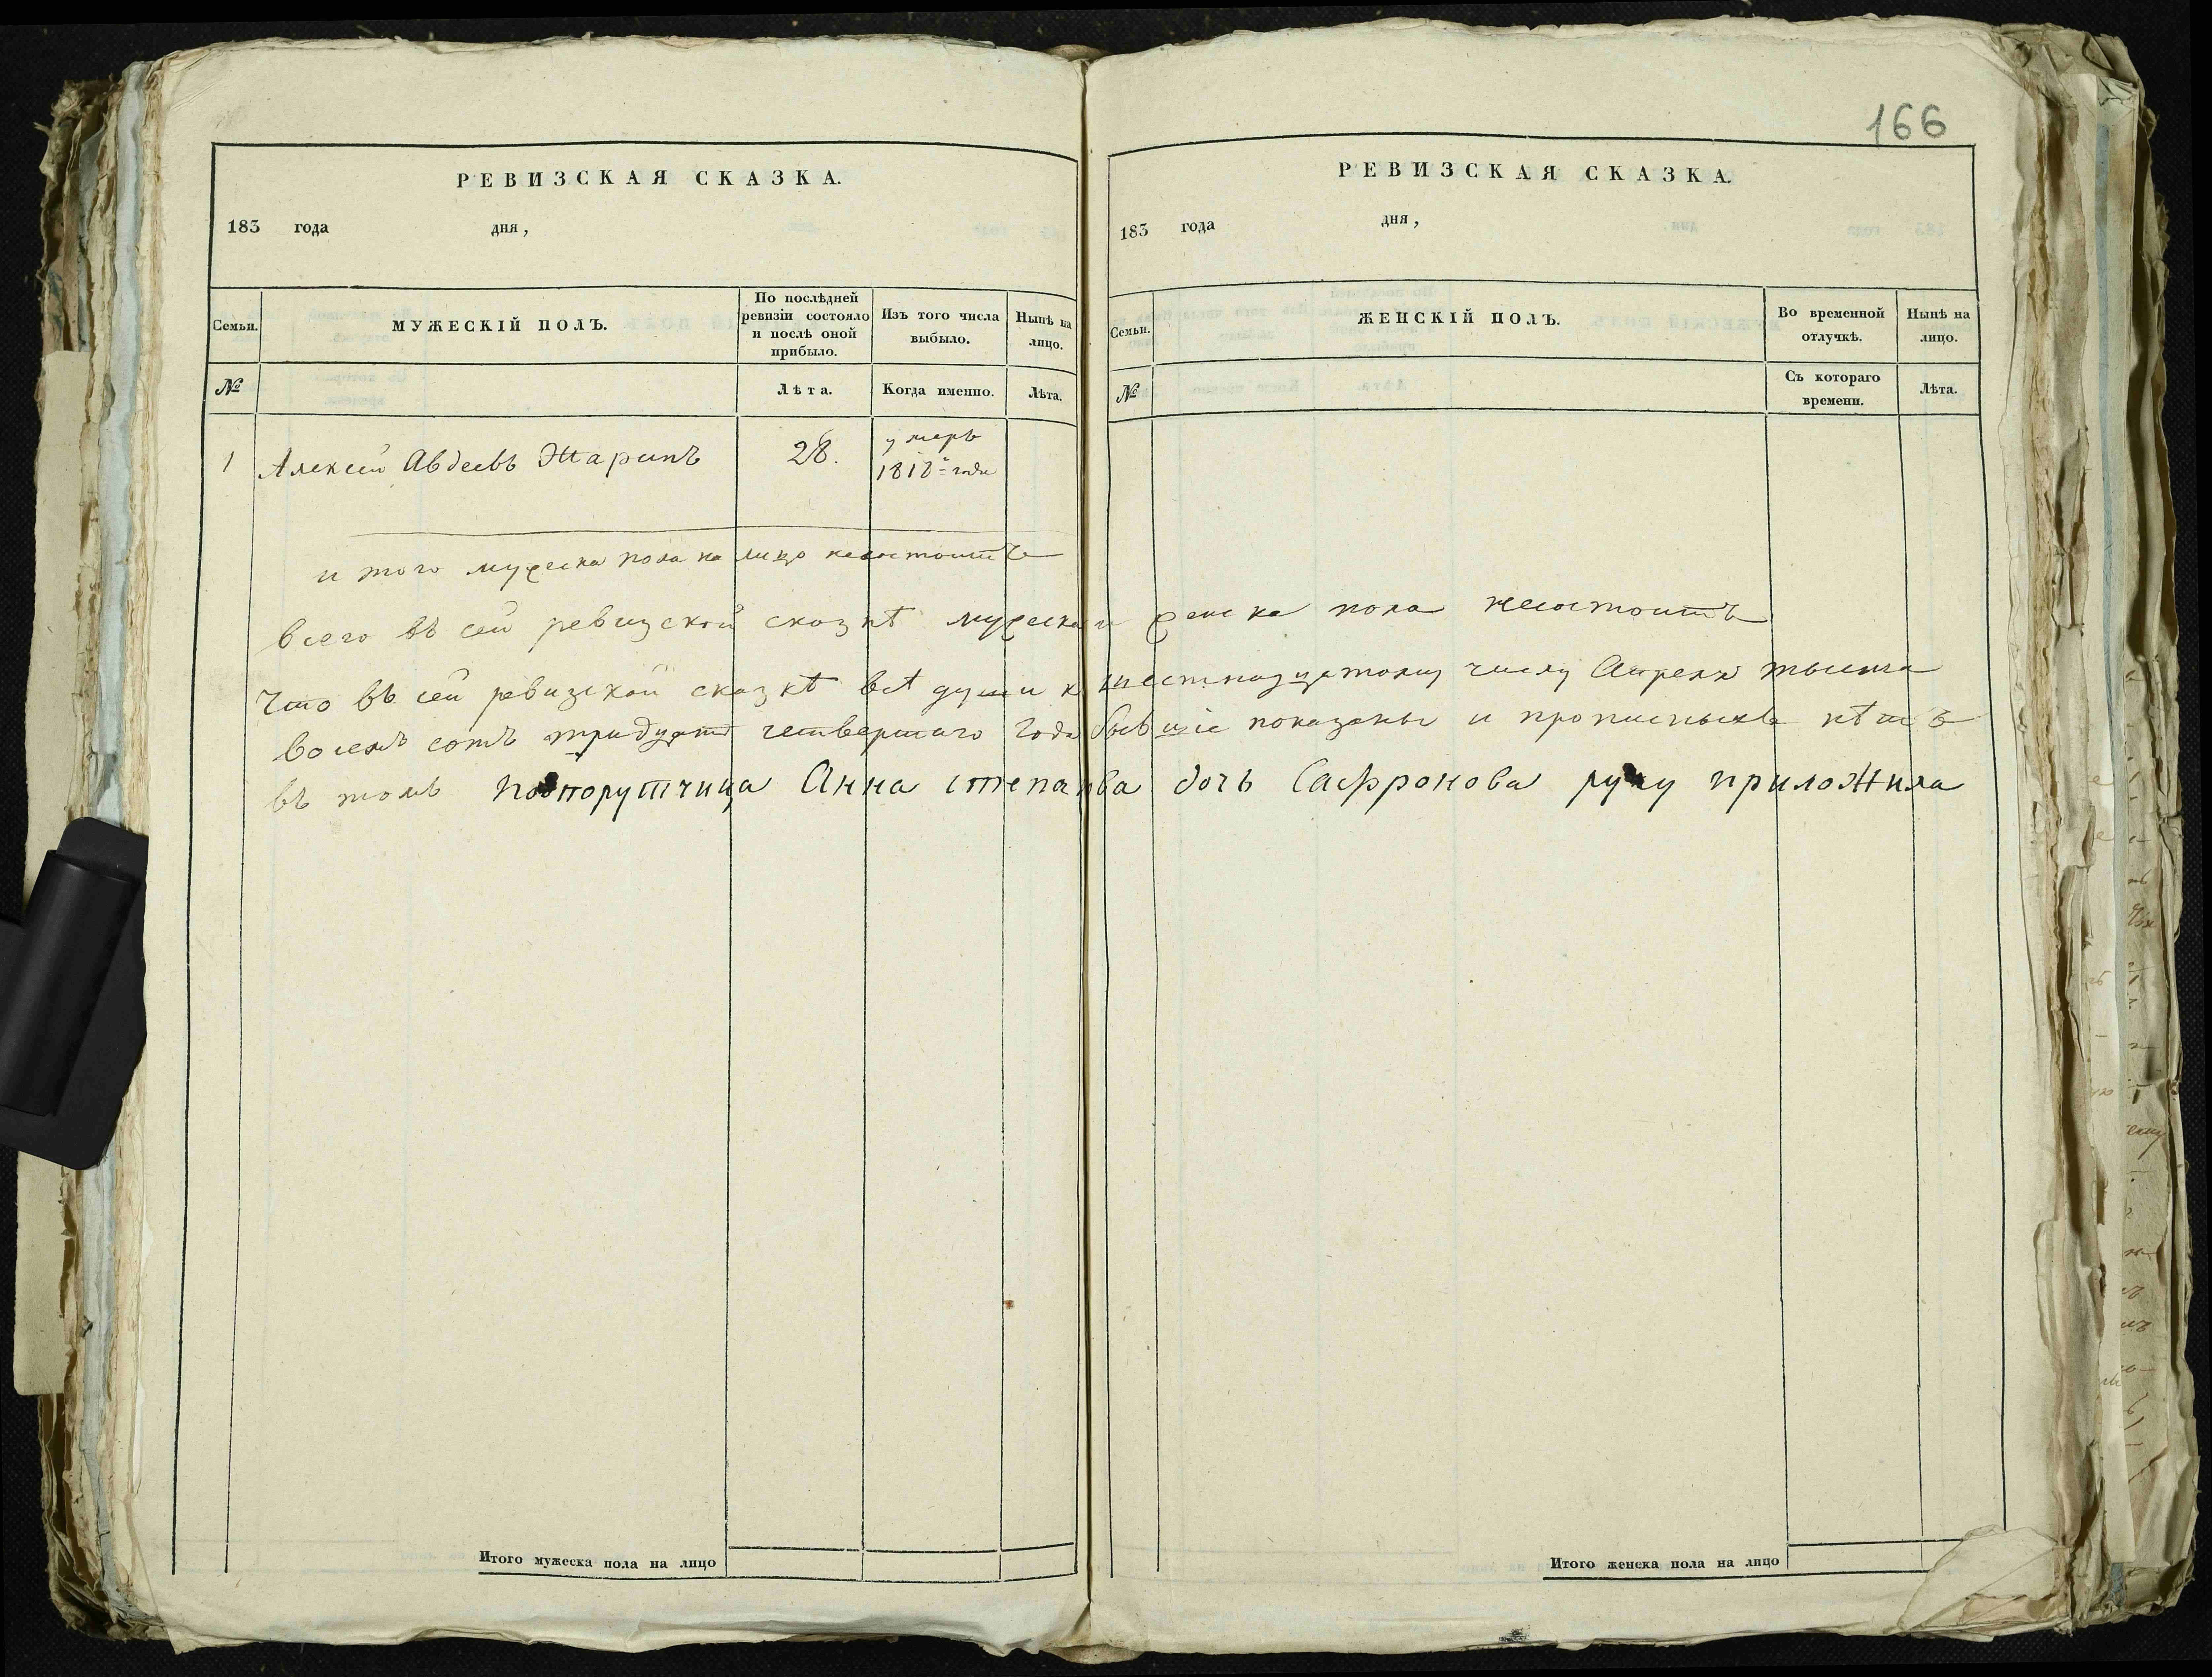 166
РЕВИЗСКАЯ СКАЗКА.
183 года дня,
Семьи.
МУЖЕСКІЙ ПОЛЪ.
По послѣдней
ревизіи состояло
и послѣ оной
прибыло.
Изъ того числа
выбыло.
Нынѣ на
лицо.
№
Лѣта.
Когда именно.
Лѣта.
1 Алексей Авдеевъ Жаринъ 28. умеръ
1818го года
итого мужеска пола на лицо несостоитъ
РЕВИЗСКАЯ СКАЗКА.
183 года дня,
Семьи.
ЖЕНСКІЙ ПОЛЪ.
Во временной
отлучкѣ.
Нынѣ на
лицо.
№
Съ котораго
времени.
Лѣта.
всего въ сей ревизской сказкѣ мужеска и женска пола несостоитъ
Что въ сей ревизской сказкѣ всѣ души к шестнадцатому числу Апреля тысеча
восемъ сотъ тридцать четвертаго года бывшіе показаны и прописныхъ нѣтъ
въ томъ подпорутчица Анна степанова дочь Сафронова руку приложила
Итого мужеска пола на лицо
Итого женска пола на лицо